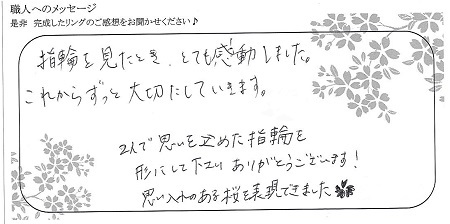 職人へのメッセージ
是非 完成したリングのご感想をお聞かせください♪
指輪を見たとき、とても感動しました。
これからずっと大切にしていきます。
2人で思いを込めた指輪を
形にして下さり ありがとうございます!
思い入れのある桜を表現できました